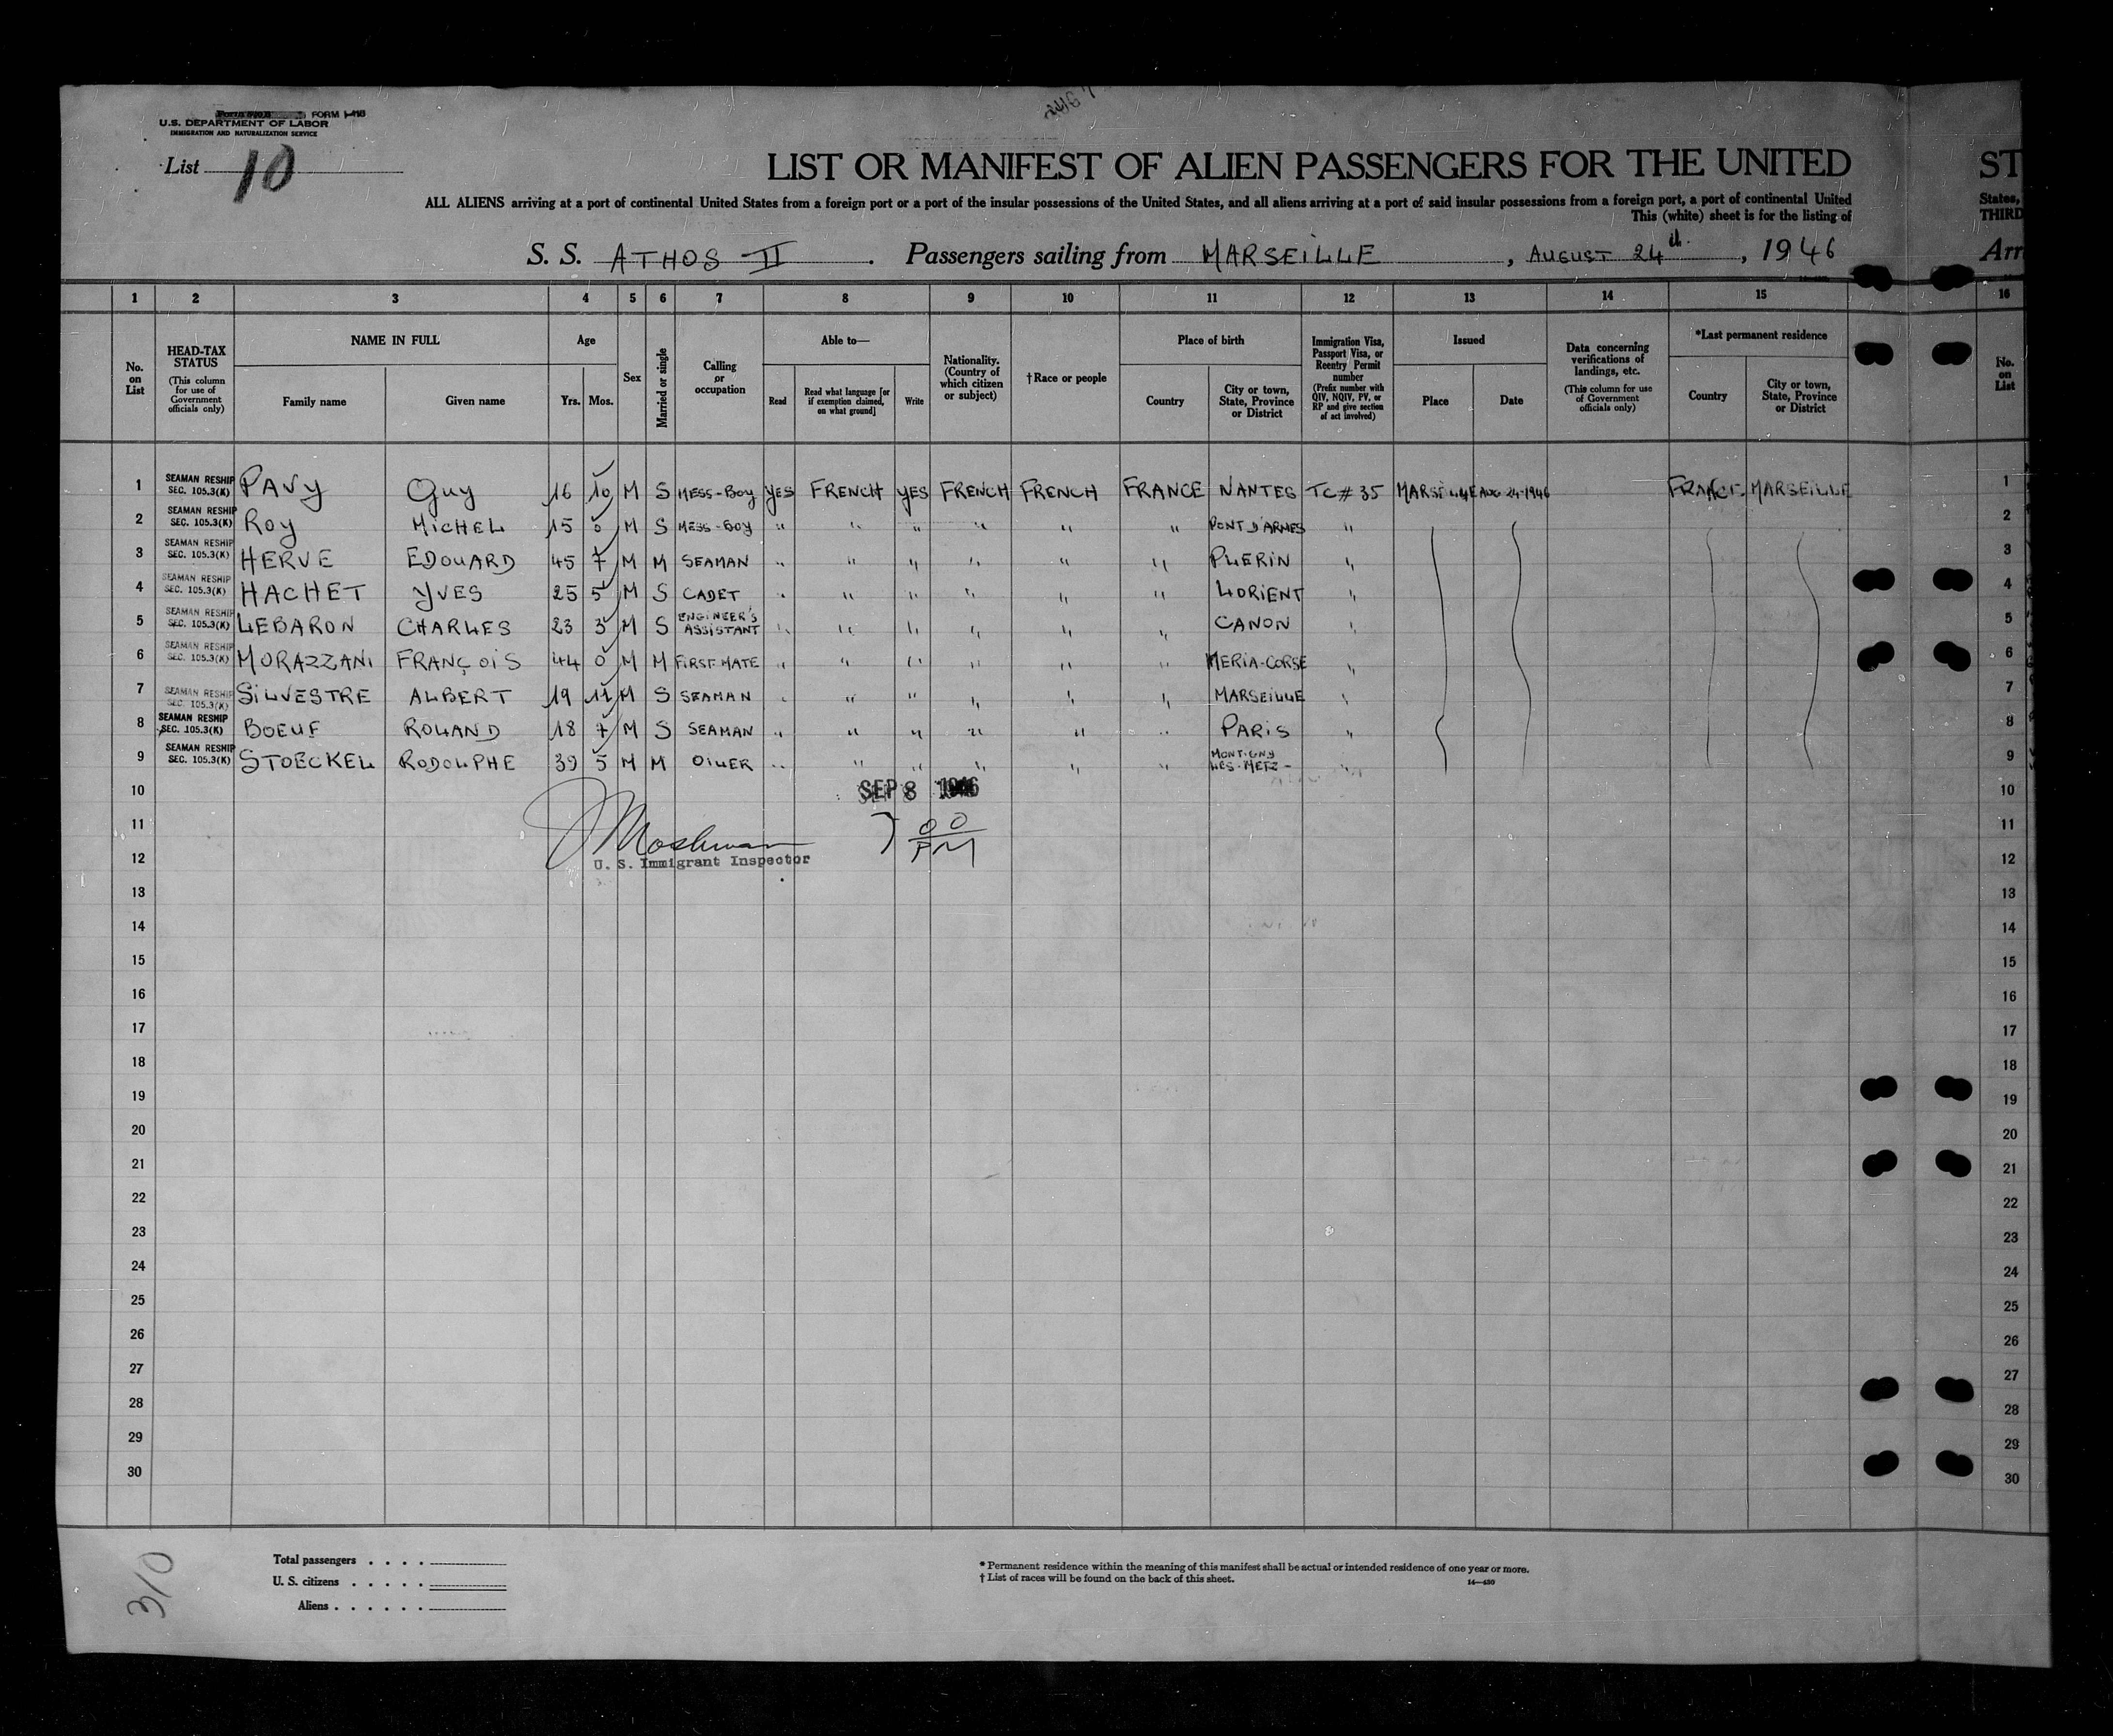 FORM I-415
U.S. DEPARTMENT OF LABOR
IMMIGRATION AND NATURALIZATION SERVICE
List 10
LIST OR MANIFEST OF ALIEN PASSENGERS FOR THE UNITED ST
ALL ALIENS arriving at a port of continental United States from a foreign port or a port of the insular possessions of the United States, and all aliens arriving at a port of said insular possessions from a foreign port, a port of continental United States,
This (white) sheet is for the listing of THIRD
S. S. ATHOS II . Passengers sailing from MARSEILLE , AUGUST 24th , 1946 Arr
1 2 3 4 5 6 7 8 9 10 11 12 13 14 15 16
No. on List
HEAD-TAX STATUS (This column for use of Government officials only)
NAME IN FULL
Family name
Given name
Age
Yrs. Mos.
Sex
Married or single
Calling or occupation
Able to—
Read
Read what language [or if exemption claimed, on what ground]
Write
Nationality. (Country of which citizen or subject)
†Race or people
Place of birth
Country
City or town, State, Province or District
Immigration Visa, Passport Visa, or Reentry Permit number (Prefix number with QIV, NQIV, PV, or RP and give section of act involved)
Issued
Place
Date
Data concerning verifications of landings, etc. (This column for use of Government officials only)
*Last permanent residence
Country
City or town, State, Province or District
No. on List
1 SEAMAN RESHIP SEC. 105.3(K) PAVY Guy 16 10 M S MESS-BOY YES FRENCH YES FRENCH FRENCH FRANCE NANTES TC# 35 MARSEILLE AUG 24-1946 FRANCE MARSEILLE 1
2 SEAMAN RESHIP SEC. 105.3(K) ROY MICHEL 15 0 M S MESS-BOY " " " " " " PONT D'ARMES " 2
3 SEAMAN RESHIP SEC. 105.3(K) HERVE EDOUARD 45 7 M M SEAMAN " " " " " " PLERIN " 3
4 SEAMAN RESHIP SEC. 105.3(K) HACHET YVES 25 5 M S CADET " " " " " " LORIENT " 4
5 SEAMAN RESHIP SEC. 105.3(K) LEBARON CHARLES 23 3 M S ENGINEER'S ASSISTANT " " " " " " CANON " 5
6 SEAMAN RESHIP SEC. 105.3(K) MORAZZANI FRANÇOIS 44 0 M M FIRST MATE " " " " " " MERIA-CORSE " 6
7 SEAMAN RESHIP SEC. 105.3(K) SILVESTRE ALBERT 19 11 M S SEAMAN " " " " " " MARSEILLE " 7
8 SEAMAN RESHIP SEC. 105.3(K) BOEUF ROLAND 18 7 M S SEAMAN " " " " " " PARIS " 8
9 SEAMAN RESHIP SEC. 105.3(K) STOECKEL RODOLPHE 39 5 M M OILER " " " " " " MONTIGNY LES-METZ - " 9
10 SEP 8 1946 10
11 11
12 U. S. Immigrant Inspector PM 12
13 13
14 14
15 15
16 16
17 17
18 18
19 19
20 20
21 21
22 22
23 23
24 24
25 25
26 26
27 27
28 28
29 29
30 30
310
Total passengers . . . .
U. S. citizens . . . . .
Aliens . . . . . .
* Permanent residence within the meaning of this manifest shall be actual or intended residence of one year or more.
† List of races will be found on the back of this sheet.
14—430